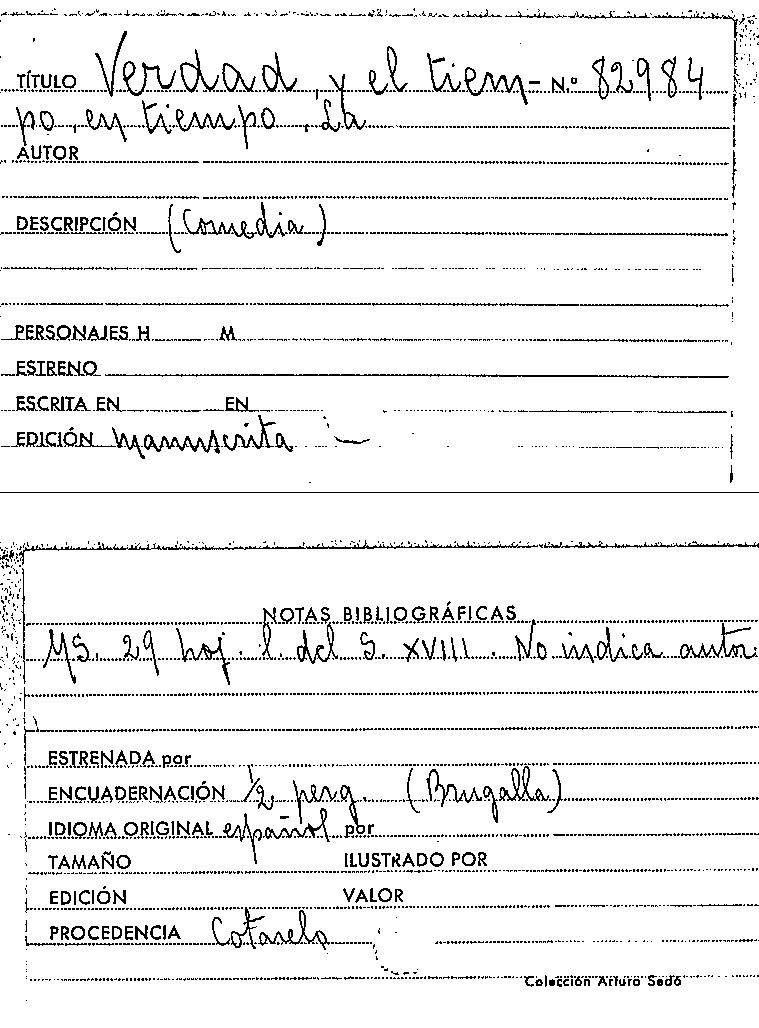 TÍTULO Verdad, y el tiem- N.º 82984
po, en tiempo. La
AUTOR
DESCRIPCIÓN (Comedia)
PERSONAJES H M
ESTRENO
ESCRITA EN EN
EDICIÓN manuscrita
NOTAS BIBLIOGRÁFICAS
MS. 29 hoj. l. del S. XVIII. No indica autor.
ESTRENADA por
ENCUADERNACIÓN 1/2 perg. (Brugalla)
IDIOMA ORIGINAL español por
TAMAÑO ILUSTRADO POR
EDICIÓN VALOR
PROCEDENCIA Cotarelo
Colección Arturo Sedó